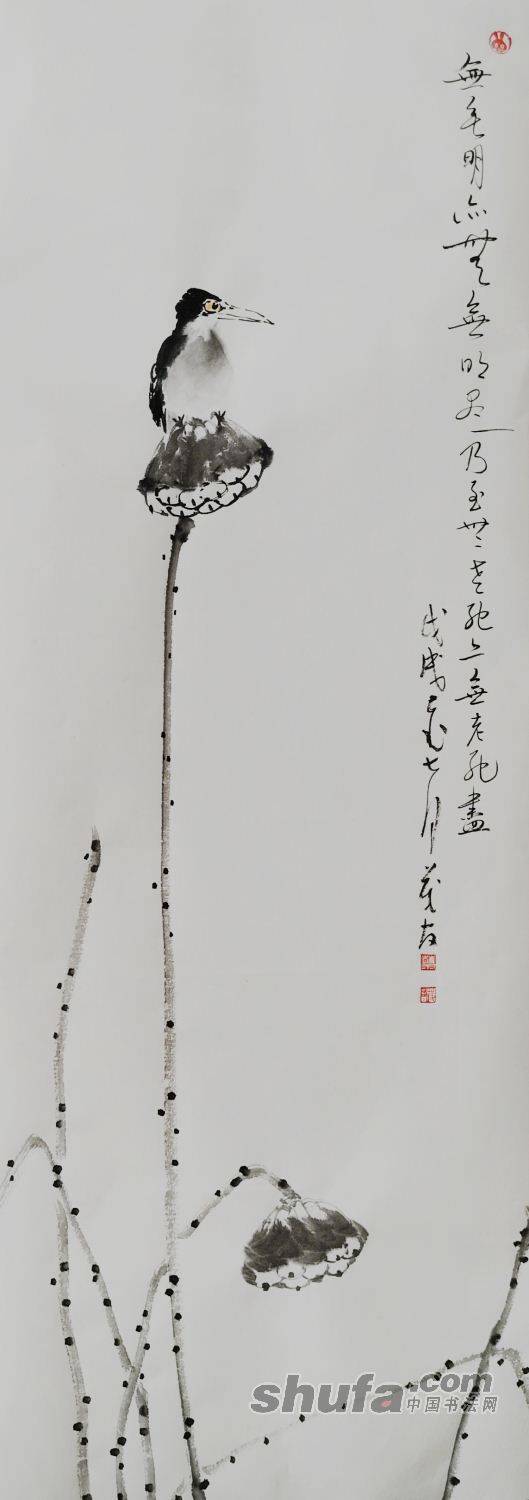 無无明亦無無明尽乃至無老死亦無老死盡
戊戌七月
shufa.com
中国书法网